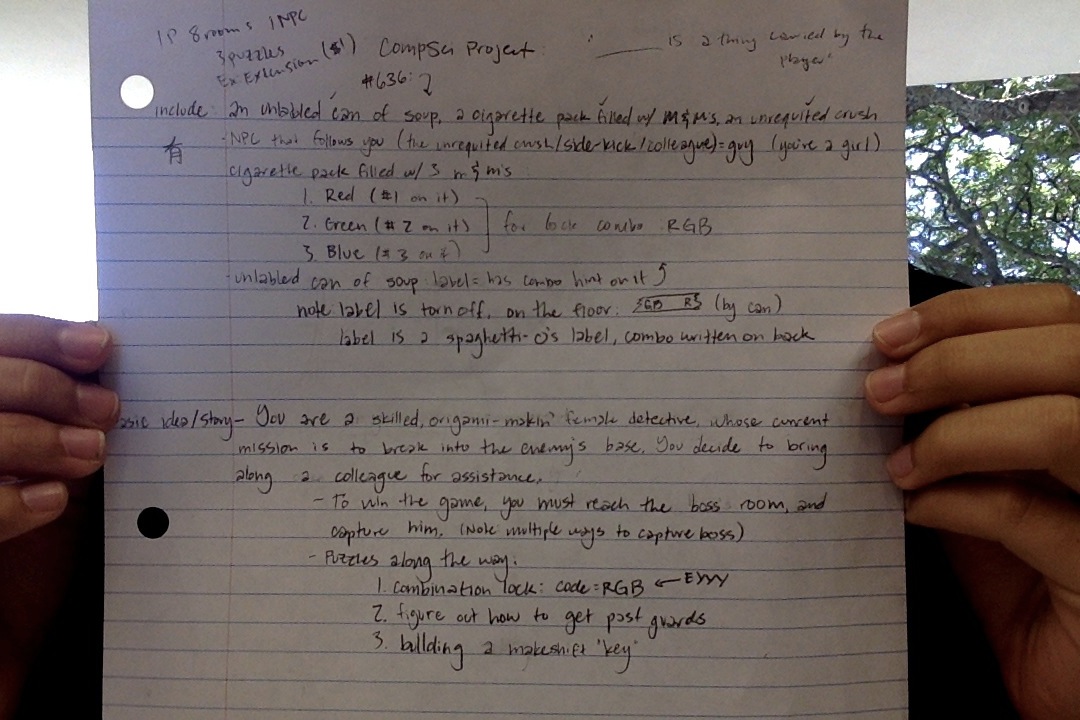 1P 8 rooms 1 NPC
3 puzzles
Ex. Extension (s!)
CompSci Project:
"______ is a thing carried by the
player"
#636:
include: an unlabled can of soup, a cigarette pack filled w/ M&M's, an unrequited crush
有
NPC that follows you (the unrequited crush/side-kick/colleague)=guy (you're a girl)
cigarette pack filled w/ 3 m&m's
1. Red (#1 on it)
2. Green (#2 on it) for lock combo RGB
3. Blue (#3 on it)
-unlabled can of soup label= has combo hint on it
note label is torn off, on the floor: (by can)
label is a spaghetti-o's label, combo written on back
basic idea/story- You are a skilled, origami-makin' female detective, whose current
mission is to break into the enemy's base. You decide to bring
along a colleague for assistance.
- To win the game, you must reach the boss room, and
capture him. (Note multiple ways to capture boss)
- Puzzles along the way:
1. combination lock: code=RGB ← EYYY
2. figure out how to get past guards
3. building a makeshift "key"